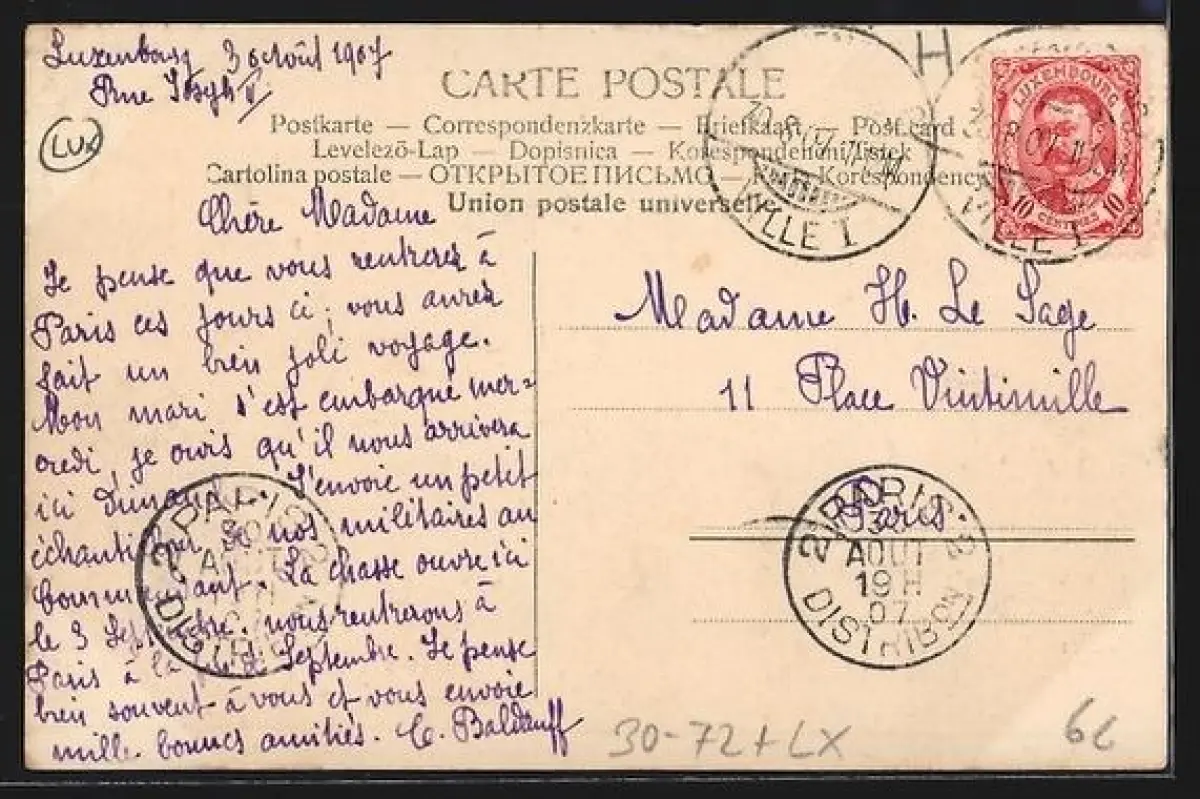 Luxembourg 30 août 1907
Rue Joseph II
LUX
CARTE POSTALE
Postkarte — Correspondenzkarte — Briefkaart — Post card
Levelező-Lap — Dopisnica — Korespondenční lístek
Cartolina postale — ОТКРЫТОЕ ПИСЬМО — Korespondency
Union postale universelle
H
VILLE I
LUXEMBOURG
10 CENTIMES 10
VILLE I
Chère Madame
Je pense que vous rentrerez à
Paris ces jours ci; vous aurez
fait un bien joli voyage.
Mon mari s'est embarqué mer=
credi, je crois qu'il nous arrivera
ici dimanche. J'envoie un petit
échantillon de nos militaires au
commandant. La chasse ouvre ici
le 3 Septembre. nous rentrerons à
Paris à la Septembre. Je pense
bien souvent à vous et vous envoie
mille bonnes amitiés. C. Baldauff
Madame H. Le Sage
11 Place Vintimille
Paris
2 PARIS 2
30
AOUT
19 H
07
DISTRIBON
2 PARIS 2
AOUT
DISTRIBON
30-72 + LX
6L